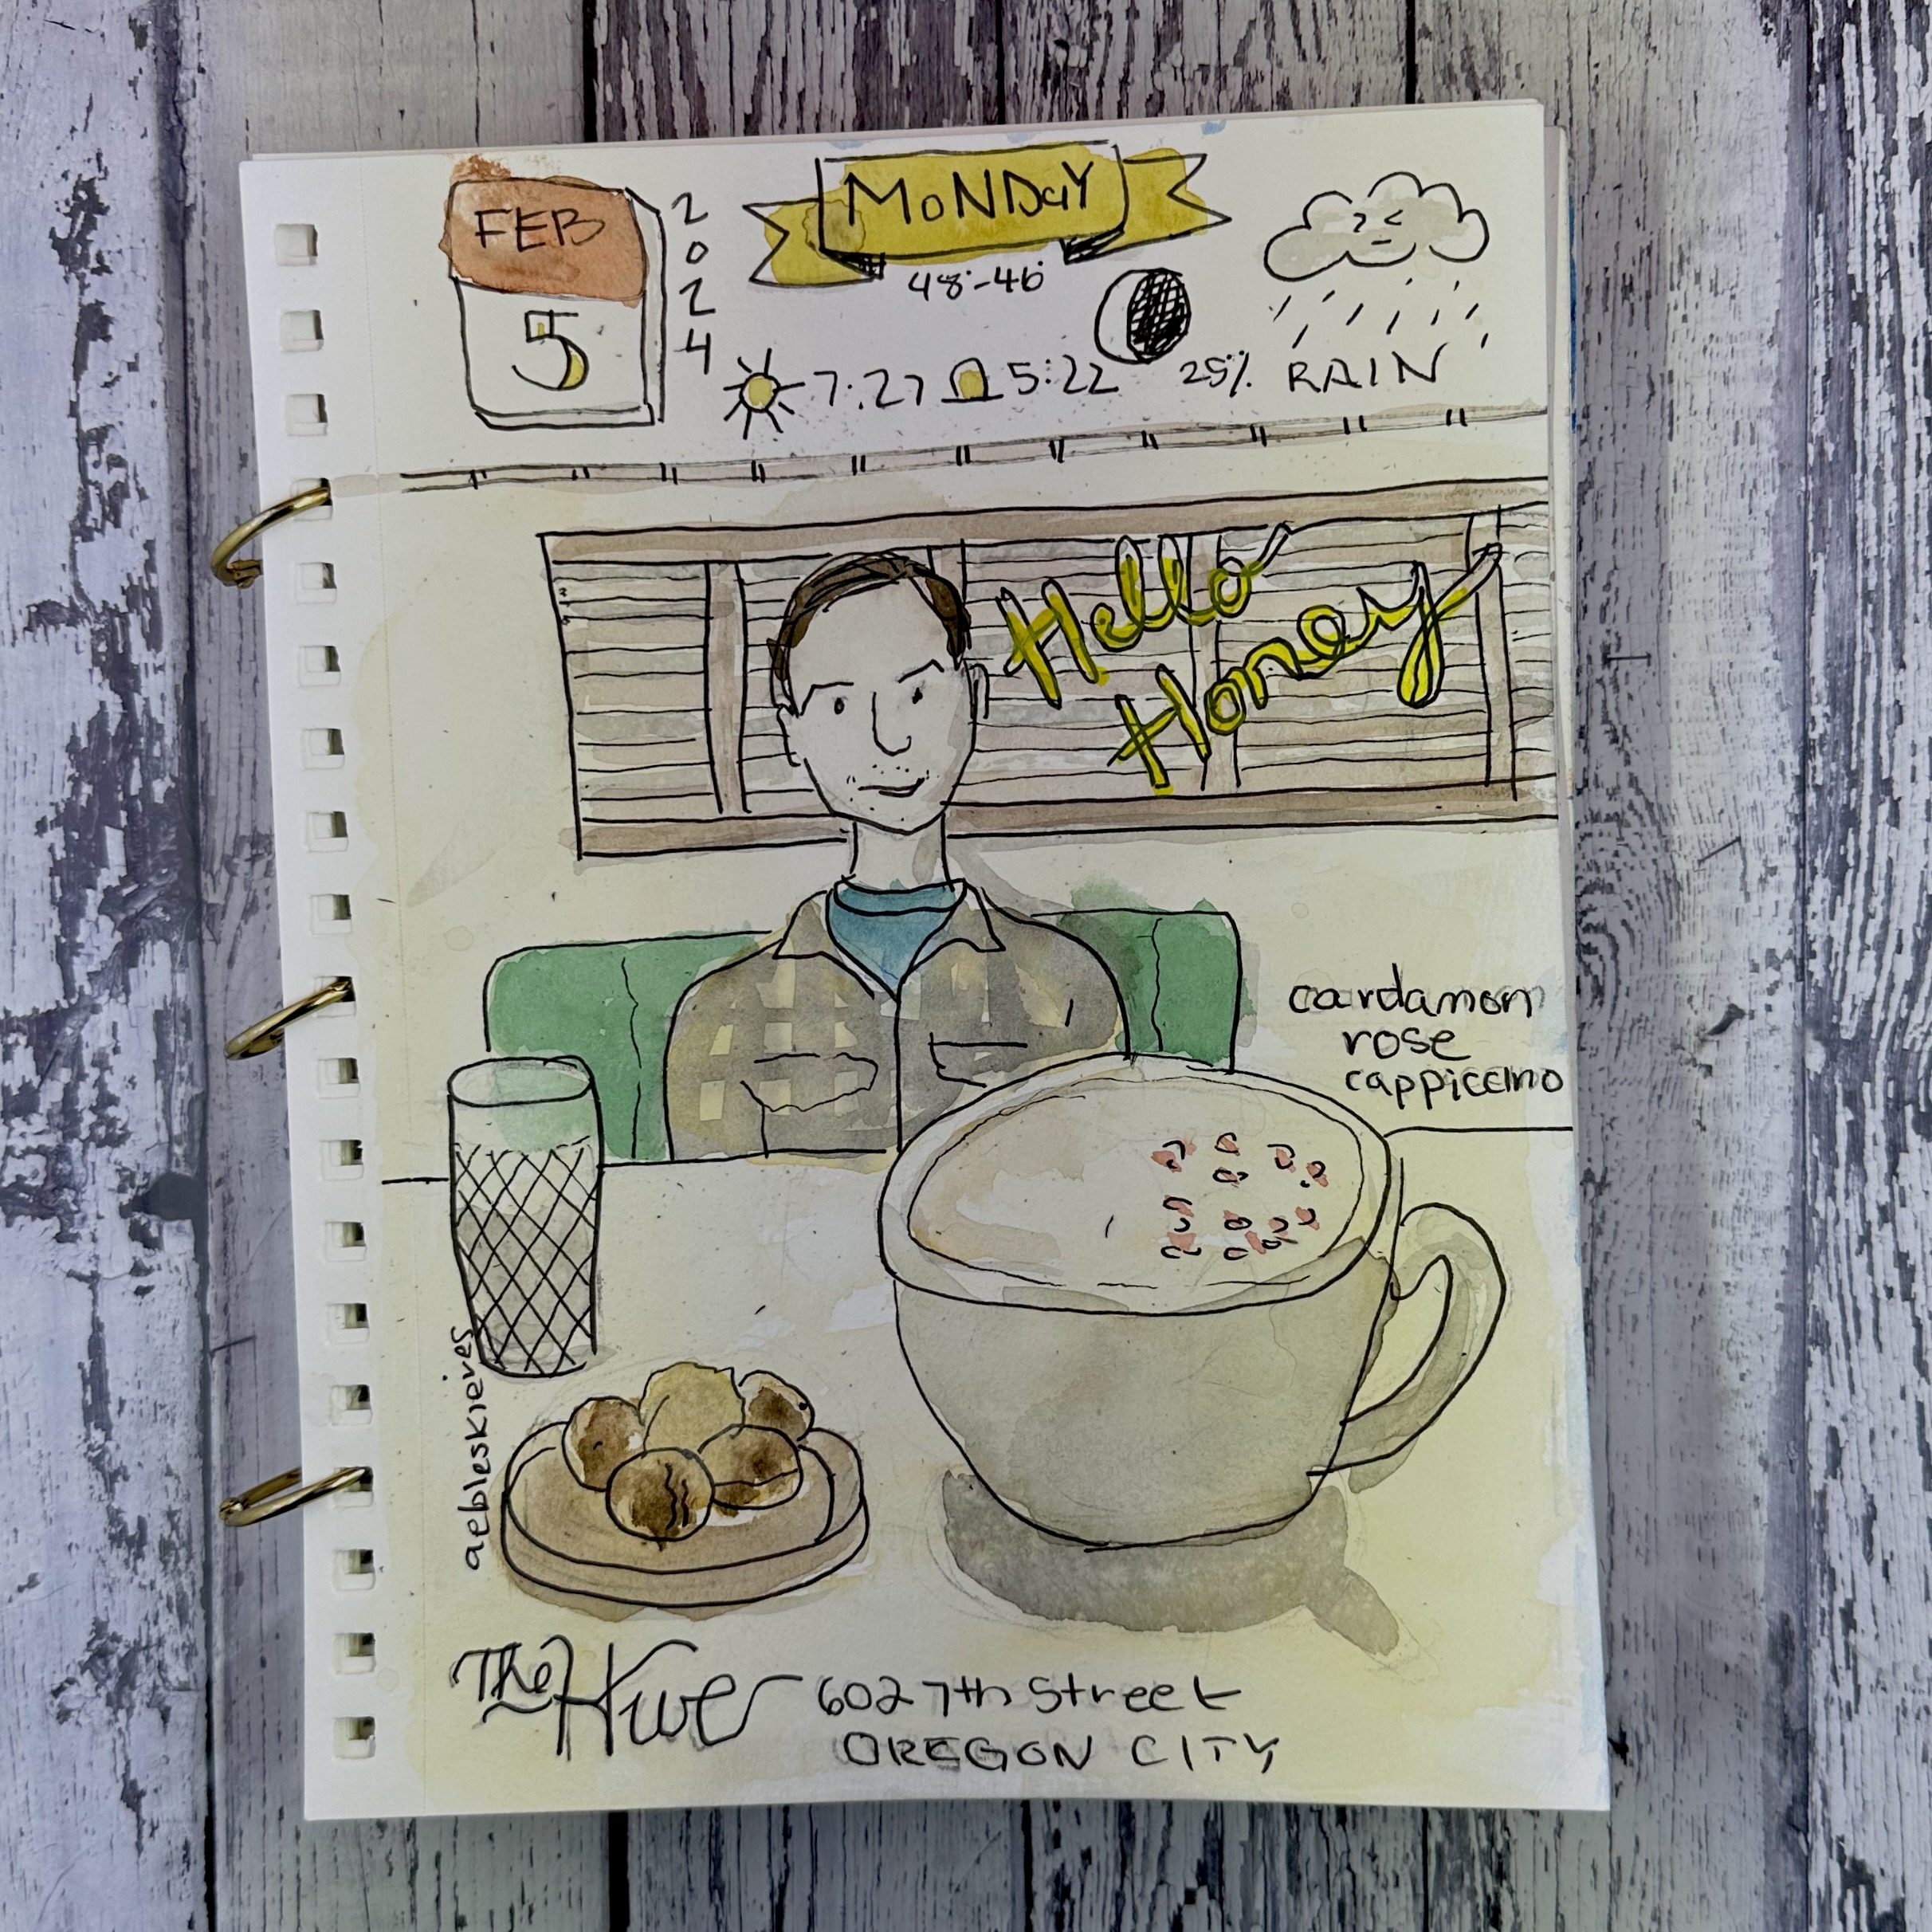 FEB
5
2024
MONDaY
48°-46°
7:27 5:22 25% RAIN
Hello
Honey
cardamon
rose
cappiccino
aebleskieves
The Hive 602 7th Street
OREGON CITY